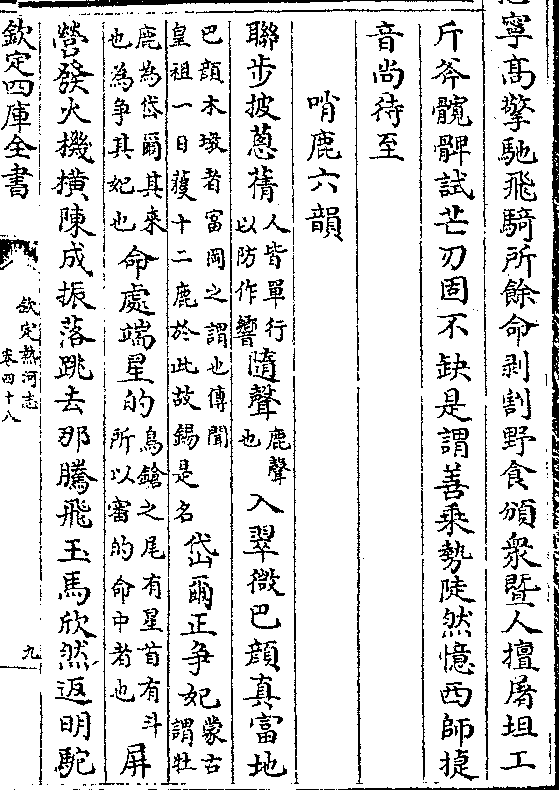 寧髙擎馳飛騎所餘命剥割野食頒衆暨人擅屠坦工
斤斧髖髀試芒刃固不缺是謂善乘勢陡然憶西師捷
音尚待至
哨鹿六韻
聯步披蔥蒨人皆單行以防作響隨聲鹿聲也入翠微巴顔真富地
巴顔木墩者富岡之謂也傳聞皇祖一日獲十二鹿於此故錫是名岱爾正爭妃蒙古謂牡
鹿為岱爾其来也為爭其妃也命處端星的鳥鎗之尾有星首有斗所以審的命中者也屏
營發火機橫陳成振落跳去那騰飛玉馬欣然返明駝
欽定四庫全書
欽定熱河志
卷四十八
九